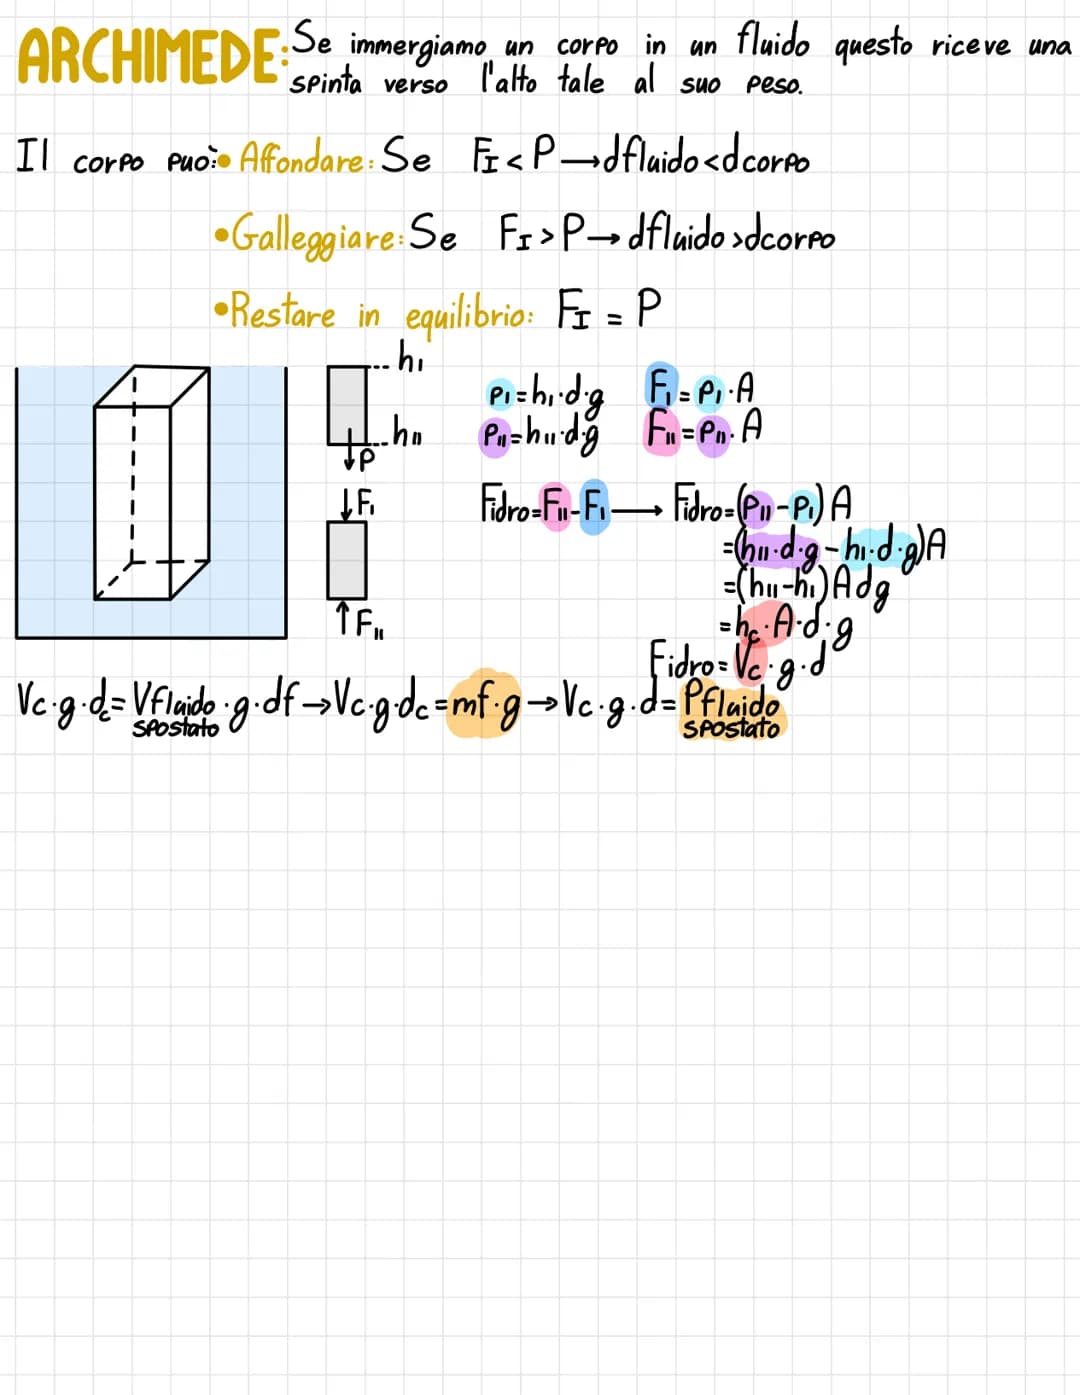 ARCHIMEDE: Se immergiamo un corpo in un fluido questo riceve una
spinta verso l'alto tale al suo peso.
Il corpo può: • Affondare: Se FI < P → dfluido < dcorpo
• Galleggiare: Se FI > P → dfluido > dcorpo
• Restare in equilibrio: FI = P
hI
hII
P
FI
FII
PI = hI · d · g FI = PI · A
PII = hII · d · g FII = PII · A
Fidro = FII - FI → Fidro = (PII - PI) A
= (hII · d · g - hI · d · g) A
= (hII - hI) A d g
= hc · A · d · g
Fidro = Vc · g · d
Vc · g · dc = Vfluido spostato · g · df → Vc · g · dc = mf · g → Vc · g · d = Pfluido spostato